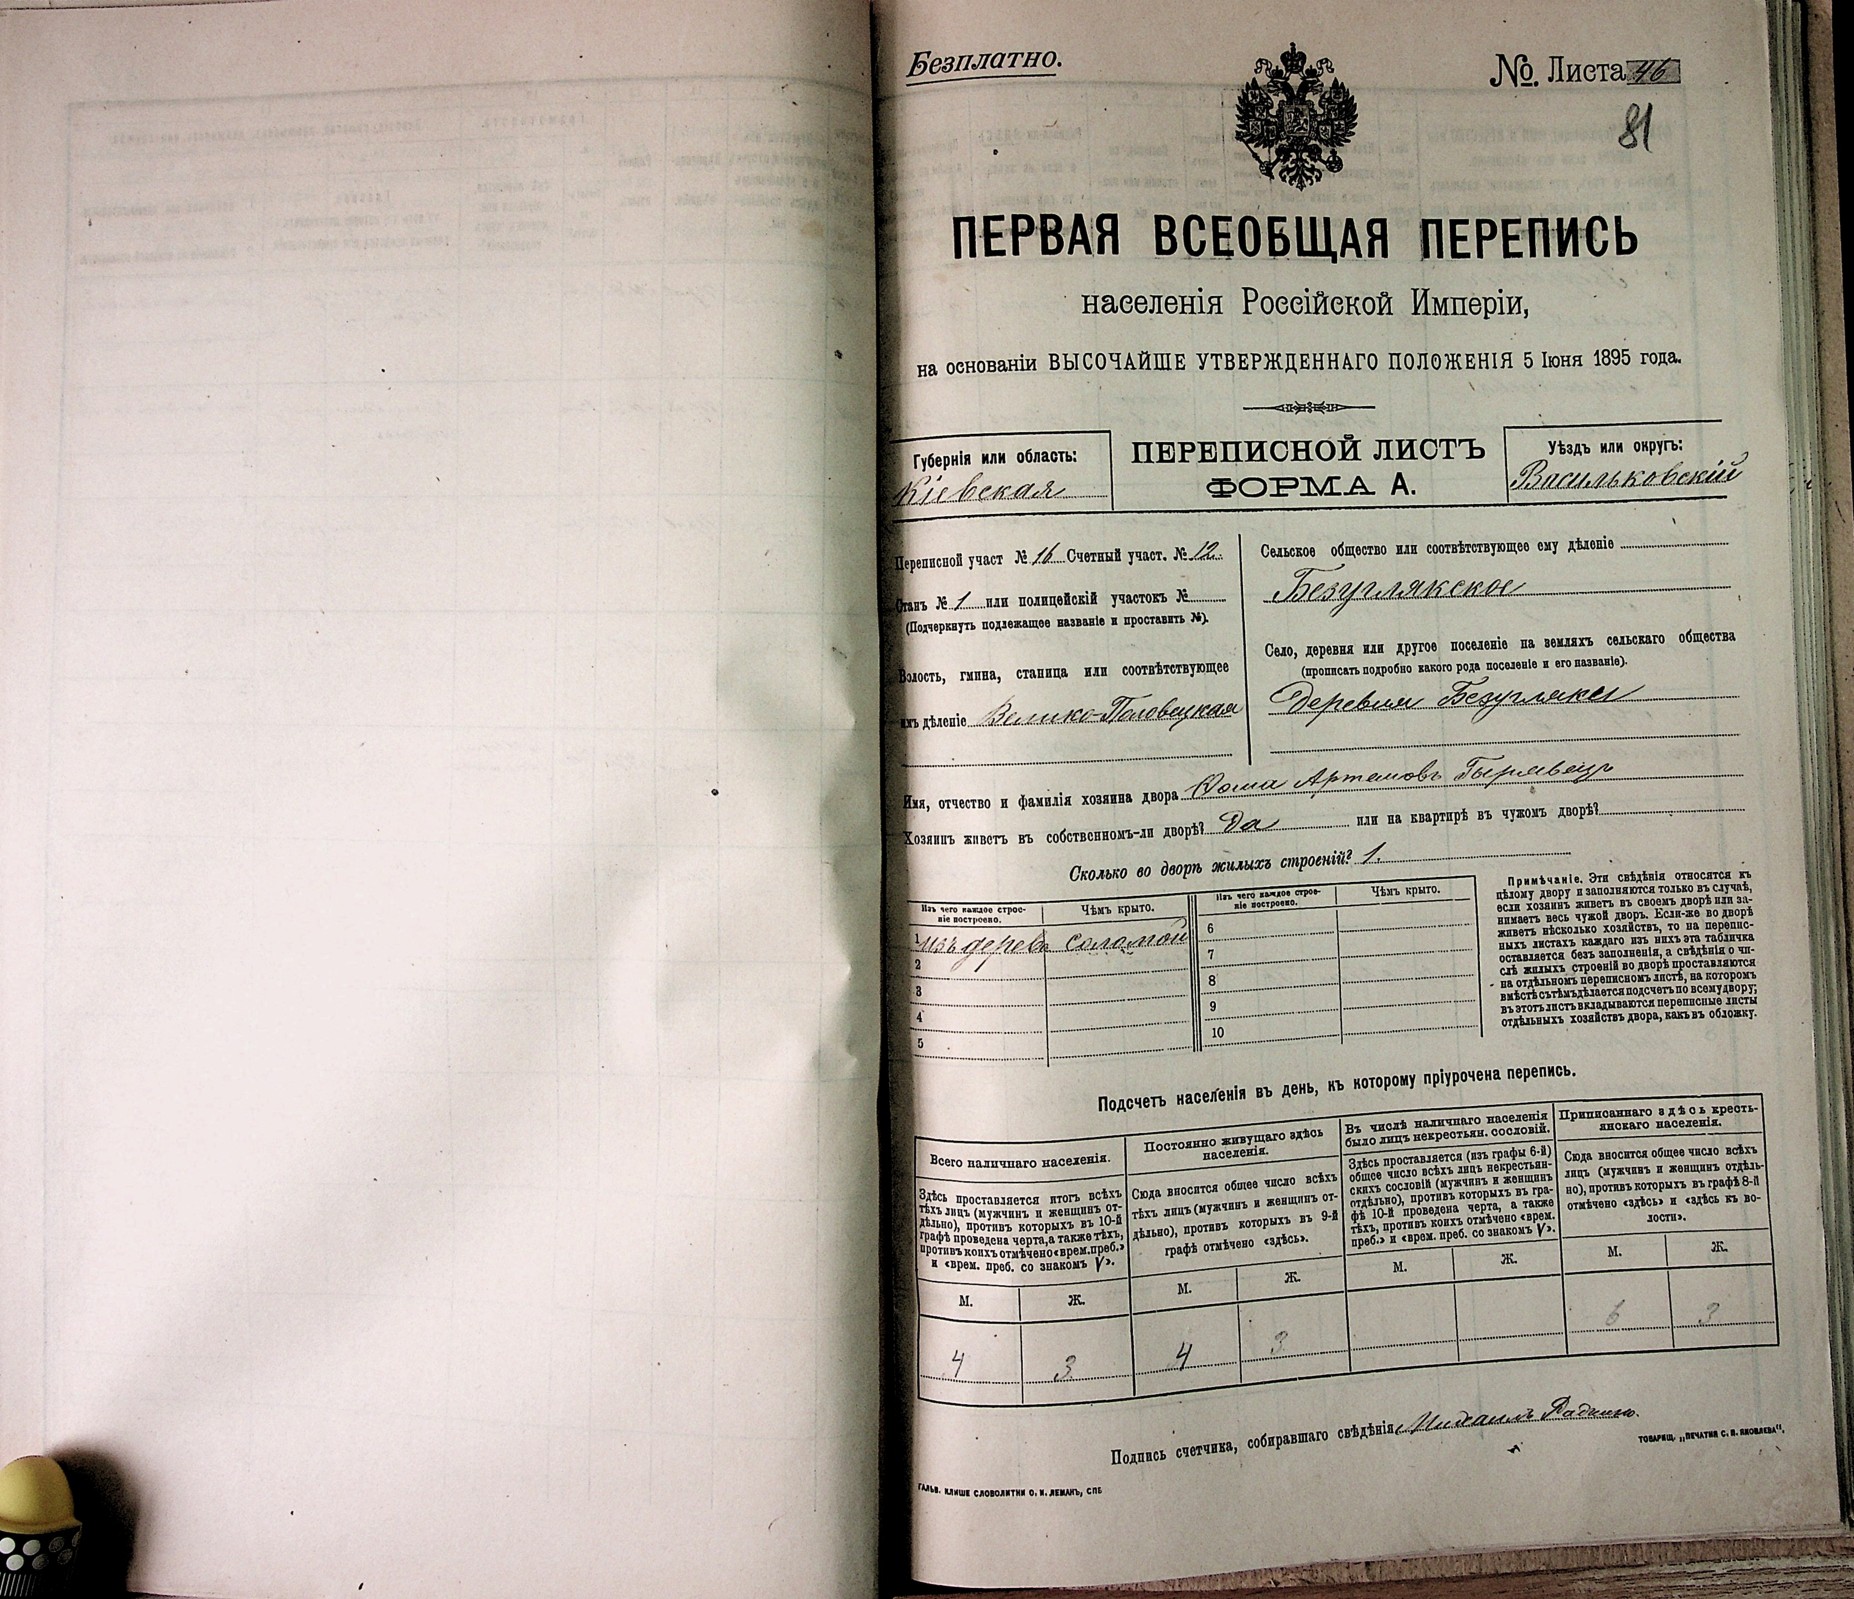 Безплатно.
№. Листа 46
81
ПЕРВАЯ ВСЕОБЩАЯ ПЕРЕПИСЬ
населенія Россійской Имперіи,
на основаніи ВЫСОЧАЙШЕ УТВЕРЖДЕННАГО ПОЛОЖЕНІЯ 5 Іюня 1895 года.
Губернія или область:
Кіевская
ПЕРЕПИСНОЙ ЛИСТЪ
ФОРМА А.
Уѣздъ или округъ:
Васильковскій
Переписной участ № 16 Счетный участ. № 12.
Станъ № 1 или полицейскій участокъ №
(Подчеркнуть подлежащее названіе и проставить №).
Волость, гмина, станица или соотвѣтствующее
имъ дѣленіе Велико-Половецкая
Сельское общество или соотвѣтствующее ему дѣленіе
Безуглякское
Село, деревня или другое поселеніе на земляхъ сельскаго общества
(прописать подробно какого рода поселеніе и его названіе).
Деревня Безугляки
Имя, отчество и фамилія хозяина двора Ѳома Артемовъ
Хозяинъ живетъ въ собственномъ-ли дворѣ? Да или на квартирѣ въ чужомъ дворѣ?
Сколько во дворѣ жилыхъ строеній? 1.
Изъ чего каждое строе-
ніе построено.
Чѣмъ крыто.
1 изъ дерева соломой
2
3
4
5
Изъ чего каждое строе-
ніе построено.
Чѣмъ крыто.
6
7
8
9
10
Примѣчаніе. Эти свѣдѣнія относятся къ
цѣлому двору и заполняются только въ случаѣ,
если хозяинъ живетъ въ своемъ дворѣ или за-
нимаетъ весь чужой дворъ. Если-же во дворѣ
живетъ нѣсколько хозяйствъ, то на перепис-
ныхъ листахъ каждаго изъ нихъ эта табличка
оставляется безъ заполненія, а свѣдѣнія о чи-
слѣ жилыхъ строеній во дворѣ проставляются
на отдѣльномъ переписномъ листѣ, на которомъ
вмѣстѣ съ тѣмъ дѣлается подсчетъ по всему двору;
въ этотъ листъ вкладываются переписные листы
отдѣльныхъ хозяйствъ двора, какъ въ обложку.
Подсчетъ населенія въ день, къ которому пріурочена перепись.
Всего наличнаго населенія.
Здѣсь проставляется итогъ всѣхъ
тѣхъ лицъ (мужчинъ и женщинъ от-
дѣльно), противъ которыхъ въ 10-й
графѣ проведена черта, а также тѣхъ,
противъ коихъ отмѣчено «врем. преб.»
и «врем. преб. со знакомъ V».
М.
Ж.
4
3
Постоянно живущаго здѣсь
населенія.
Сюда вносится общее число всѣхъ
тѣхъ лицъ (мужчинъ и женщинъ от-
дѣльно), противъ которыхъ въ 9-й
графѣ отмѣчено «здѣсь».
М.
Ж.
4
3
Въ числѣ наличнаго населенія
было лицъ некрестьян. сословій.
Здѣсь проставляется (изъ графы 6-й)
общее число всѣхъ лицъ некрестьян-
скихъ сословій (мужчинъ и женщинъ
отдѣльно), противъ которыхъ въ гра-
фѣ 10-й проведена черта, а также
тѣхъ, противъ коихъ отмѣчено «врем.
преб.» и «врем. преб. со знакомъ V».
М.
Ж.
Приписаннаго здѣсь кресть-
янскаго населенія.
Сюда вносится общее число всѣхъ
лицъ (мужчинъ и женщинъ отдѣль-
но), противъ которыхъ въ графѣ 8-й
отмѣчено «здѣсь» и «здѣсь къ во-
лости».
М.
Ж.
6
3
Подпись счетчика, собиравшаго свѣдѣнія Михаилъ
ТОВАРИЩ. „ПЕЧАТНЯ С. П. ЯКОВЛЕВА“.
ГАЛЬВ. КЛИШЕ СЛОВОЛИТНИ О. И. ЛЕМАНЪ, СПБ